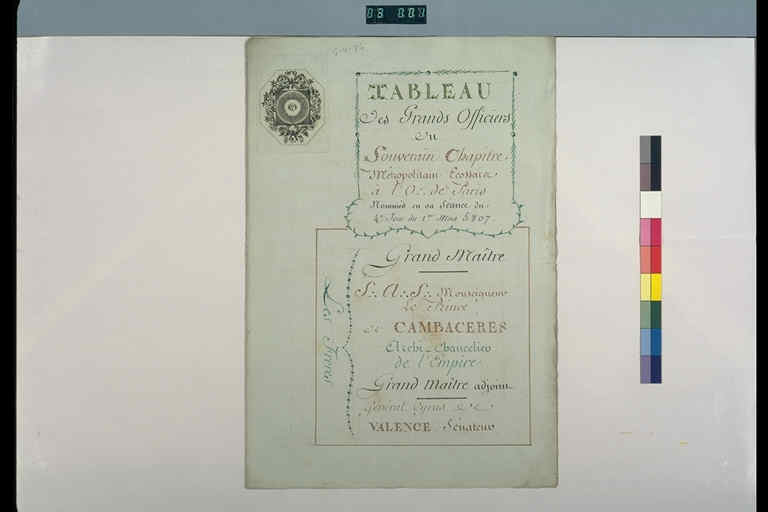 TABLEAU
Des Grands Officiers
Du
Souverain Chapitre
Métropolitain Ecossais
à l'O∴ de Paris
Nommés en sa Séance du
4e Jour du 1er Mois 5807
Grand Maître
S∴ A∴ S∴ Monseigneur
Le Prince
de CAMBACERES
Archi-Chancelier
de l'Empire
Grand Maître adjoint
Général Cyrus de
VALENCE Sénateur
Les Frères